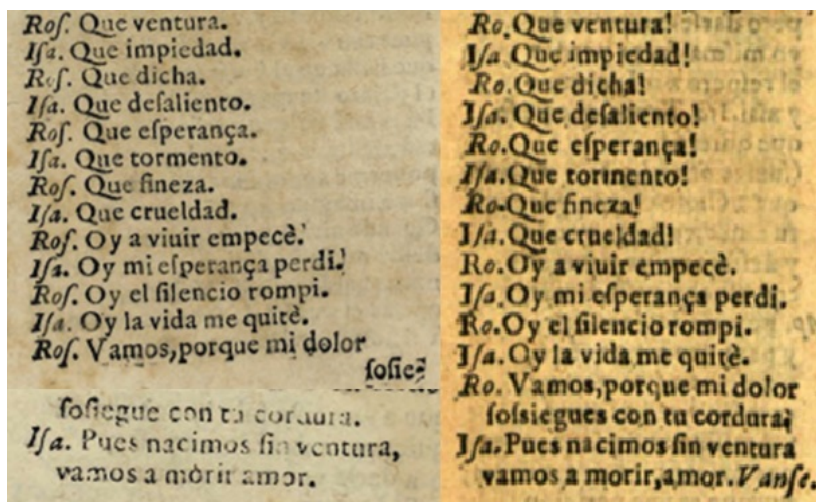 Roſ. Que ventura.
Iſa. Que impiedad.
Roſ. Que dicha.
Iſa. Que deſaliento.
Roſ. Que eſperança.
Iſa. Que tormento.
Roſ. Que fineza.
Iſa. Que crueldad.
Roſ. Oy a viuir empecè.
Iſa. Oy mi eſperança perdi.
Roſ. Oy el ſilencio rompi.
Iſa. Oy la vida me quitè.
Roſ. Vamos, porque mi dolor
ſoſie-
ſoſiegue con tu cordura.
Iſa. Pues nacimos ſin ventura,
vamos a mòrir amor.
Ro. Que ventura!
Iſa. Que impiedad!
Ro. Que dicha!
Iſa. Que deſaliento!
Ro. Que eſperança!
Iſa. Que tormento!
Ro. Que fineza!
Iſa. Que crueldad!
Ro. Oy a viuir empecè.
Iſa. Oy mi eſperança perdi.
Ro. Oy el ſilencio rompi.
Iſa. Oy la vida me quitè.
Ro. Vamos, porque mi dolor
ſoſsiegues con tu cordura;
Iſa. Pues nacimos ſin ventura
vamos a morir, amor. Vanſe.